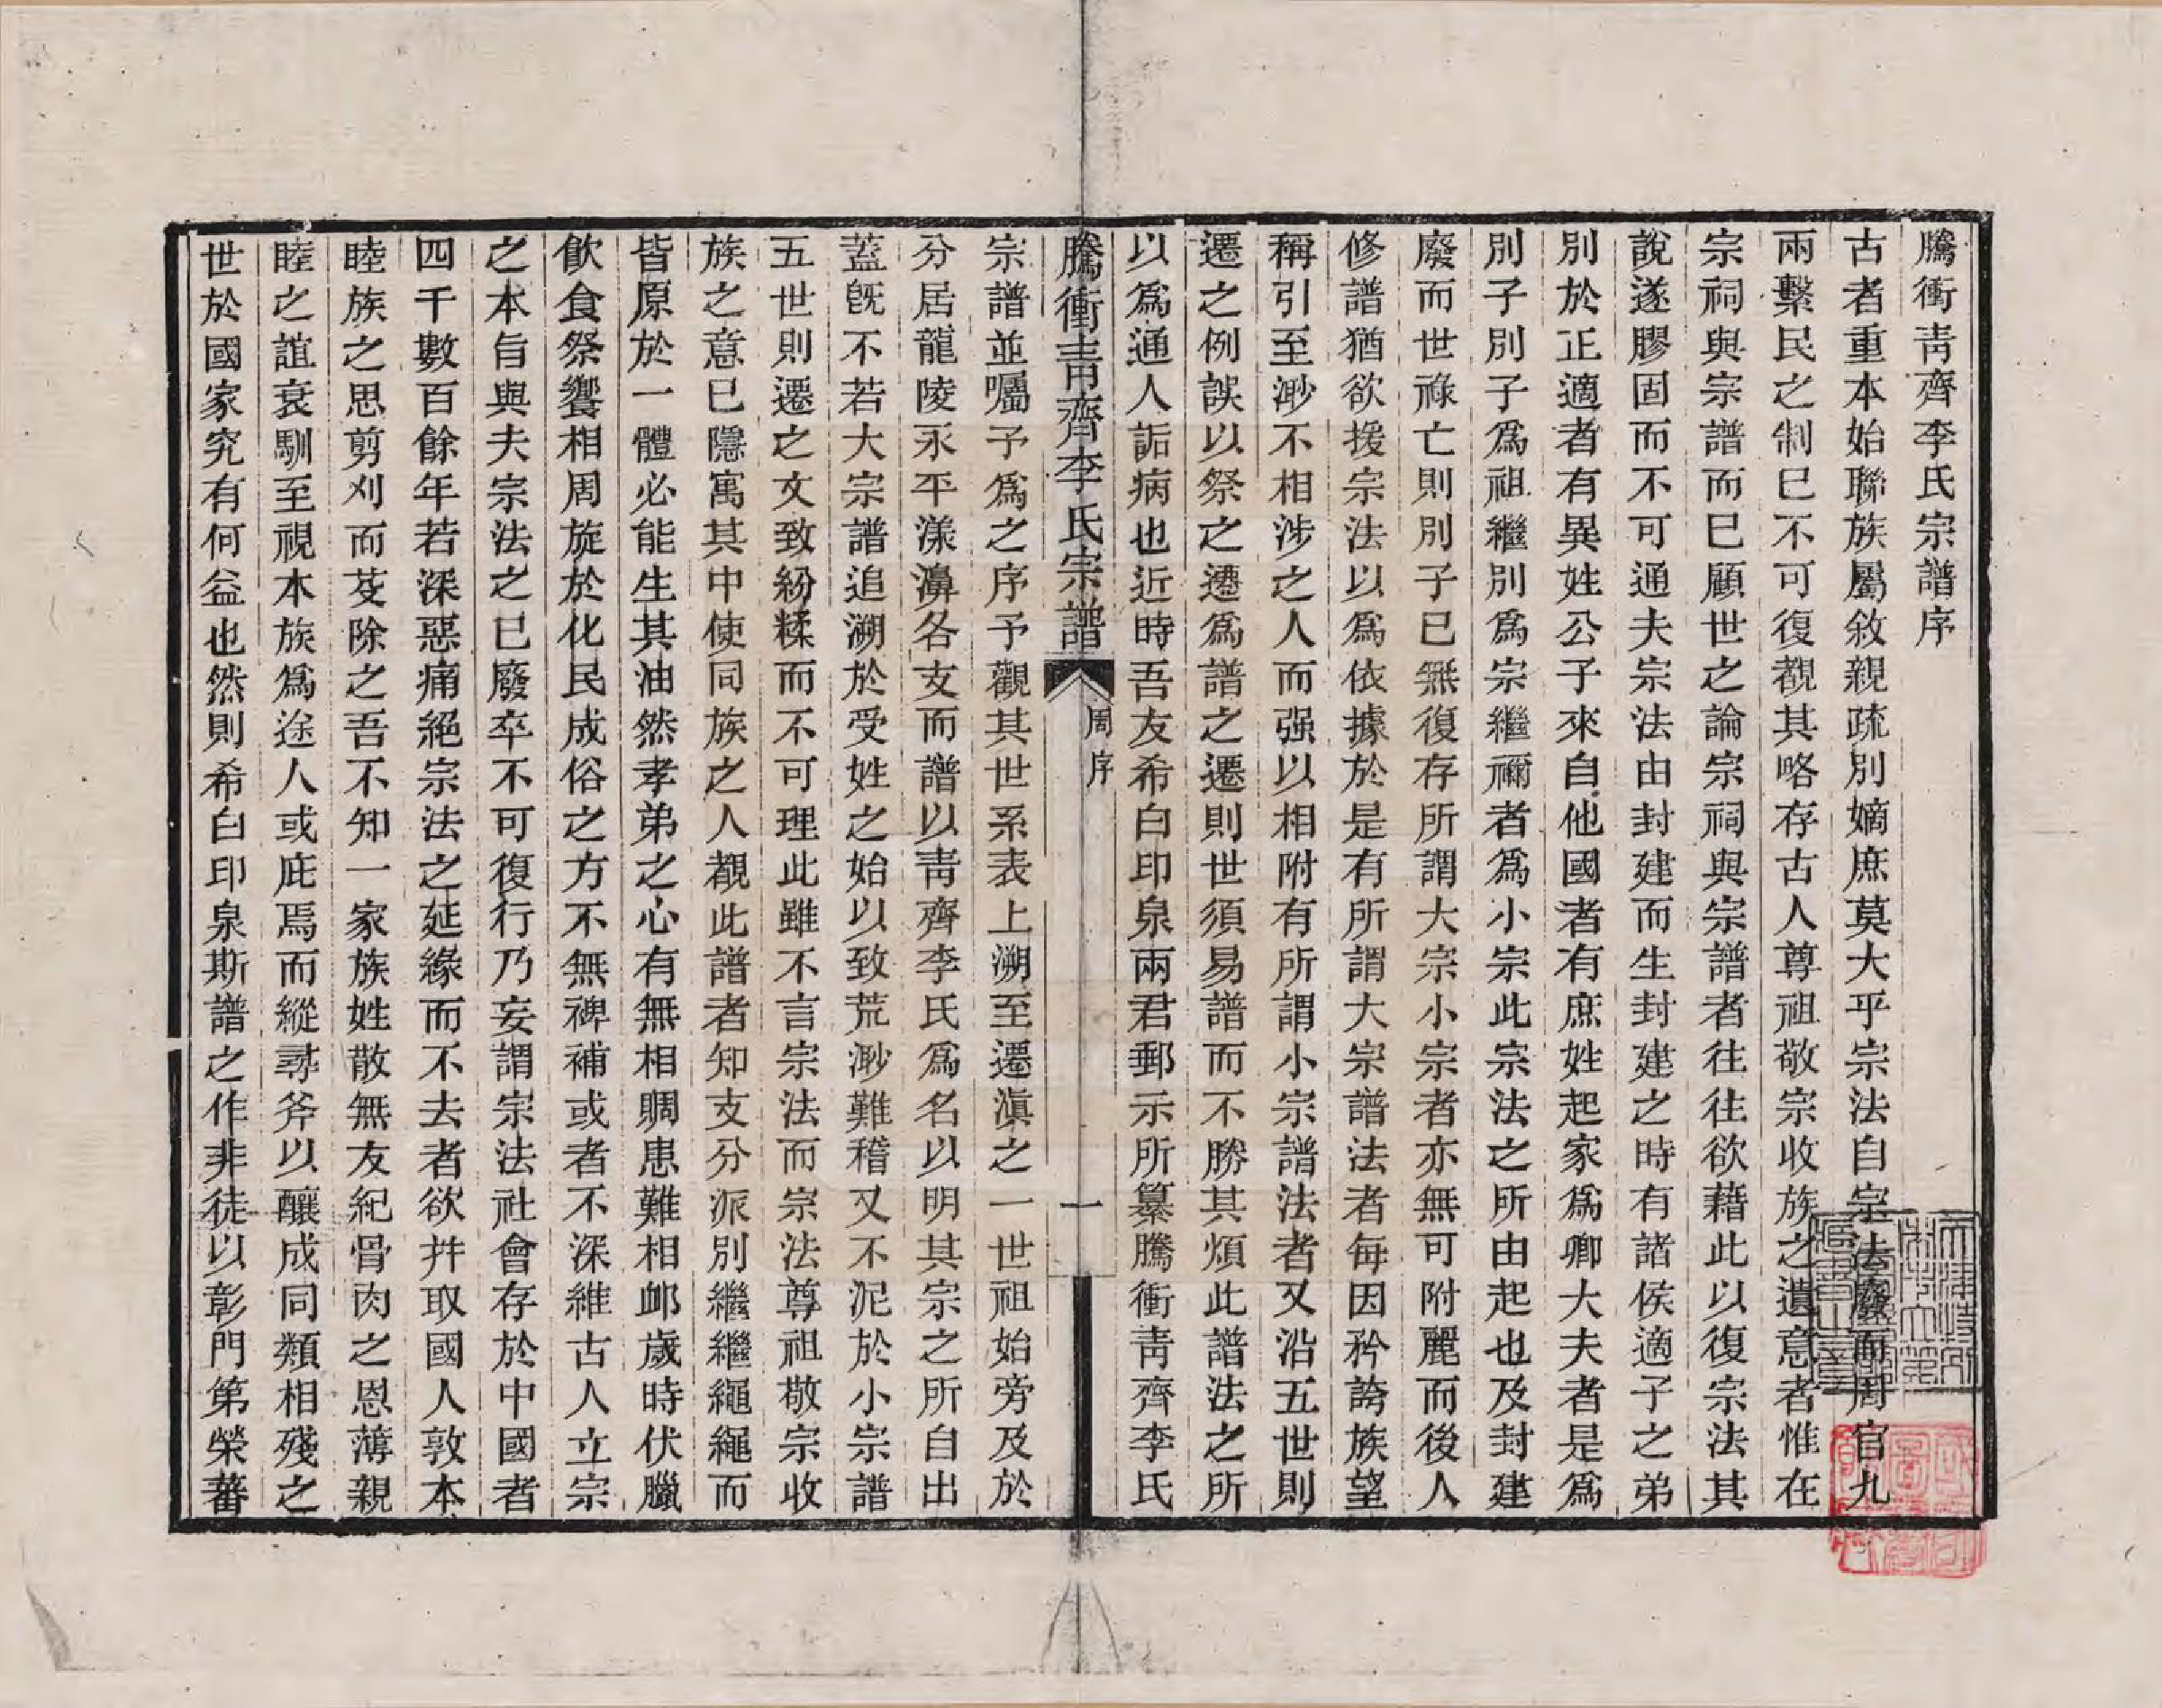 騰衝靑齊李氏宗譜序
古者重本始聯族屬敘親疏別嫡庶莫大乎宗法自宗法廢而周官九
兩繫民之制已不可復覩其略存古人尊祖敬宗收族之遺意者惟在
宗祠與宗譜而已顧世之論宗祠與宗譜者往往欲藉此以復宗法其
說遂膠固而不可通夫宗法由封建而生封建之時有諸侯適子之弟
別於正適者有異姓公子來自他國者有庶姓起家爲卿大夫者是爲
別子別子爲祖繼別爲宗繼禰者爲小宗此宗法之所由起也及封建
廢而世祿亡則別子已無復存所謂大宗小宗者亦無可附麗而後人
修譜猶欲援宗法以爲依據於是有所謂大宗譜法者每因矜誇族望
稱引至渺不相涉之人而强以相附有所謂小宗譜法者又沿五世則
遷之例誤以祭之遷爲譜之遷則世須易譜而不勝其煩此譜法之所
以爲通人詬病也近時吾友希白印泉兩君郵示所纂騰衝靑齊李氏
騰衝靑齊李氏宗譜
周序
一
宗譜並囑予爲之序予觀其世系表上溯至遷滇之一世祖始旁及於
分居龍陵永平漾濞各支而譜以靑齊李氏爲名以明其宗之所自出
蓋旣不若大宗譜追溯於受姓之始以致荒渺難稽又不泥於小宗譜
五世則遷之文致紛糅而不可理此雖不言宗法而宗法尊祖敬宗收
族之意已隱寓其中使同族之人覩此譜者知支分派別繼繼繩繩而
皆原於一體必能生其油然孝弟之心有無相賙患難相卹歲時伏臘
飮食祭饗相周旋於化民成俗之方不無裨補或者不深維古人立宗
之本旨與夫宗法之已廢卒不可復行乃妄謂宗法社會存於中國者
四千數百餘年若深惡痛絕宗法之延緣而不去者欲幷取國人敦本
睦族之思剪刈而芟除之吾不知一家族姓散無友紀骨肉之恩薄親
睦之誼衰馴至視本族爲途人或庇焉而縱尋斧以釀成同類相殘之
世於國家究有何益也然則希白印泉斯譜之作非徒以彰門第榮蕃